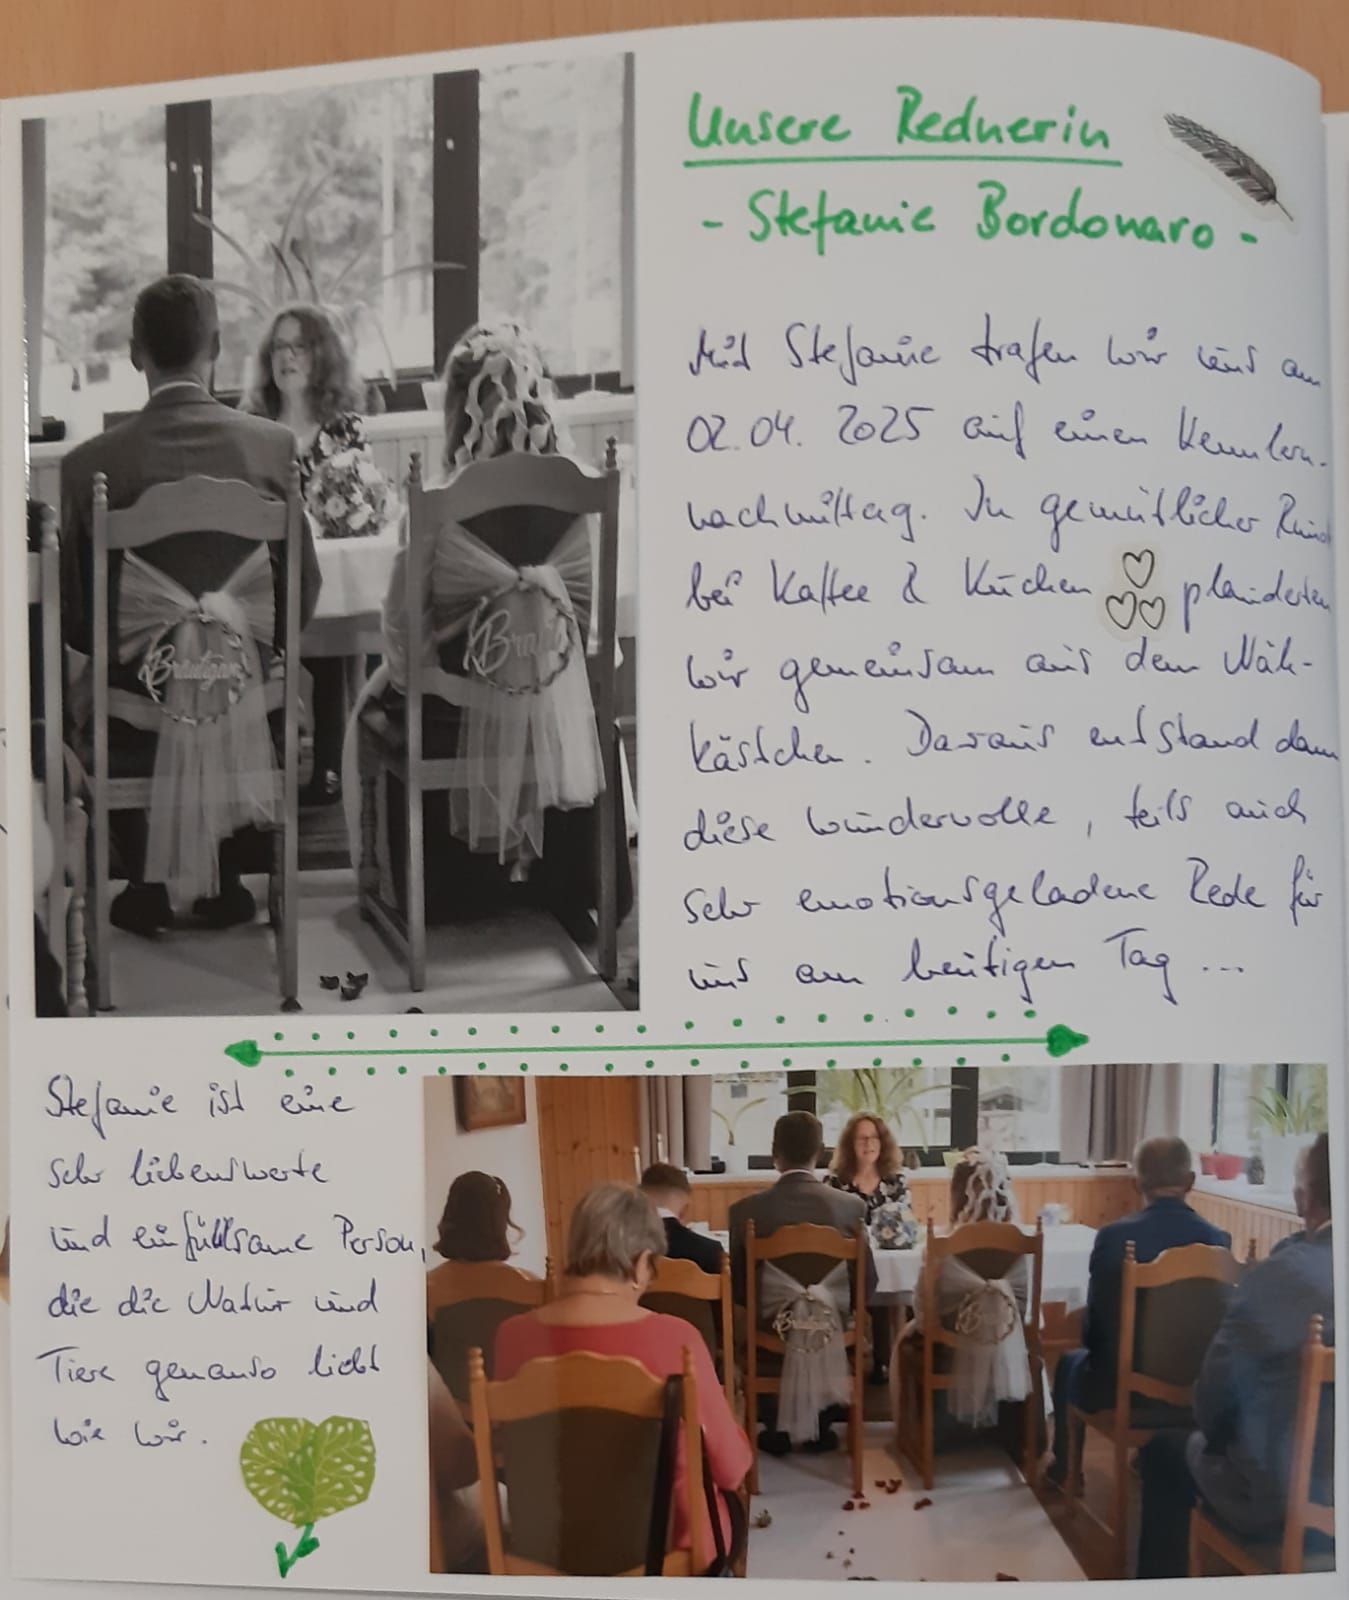 Unsere Rednerin
- Stefanie Bordonaro -
Mit Stefanie trafen wir uns am
02.04.2025 auf einen Kennlern-
nachmittag. In gemütlicher Rund
bei Kaffee & Kuchen plauderten
wir gemeinsam aus dem Näh-
kästchen. Daraus entstand dann
diese wundervolle, teils auch
sehr emotionsgeladene Rede für
uns am heutigen Tag ...
Bräutigam
Braut
Stefanie ist eine
sehr liebenswerte
und einfühlsame Person,
die die Natur und
Tiere genauso liebt
wie wir.
Bräutigam
Braut